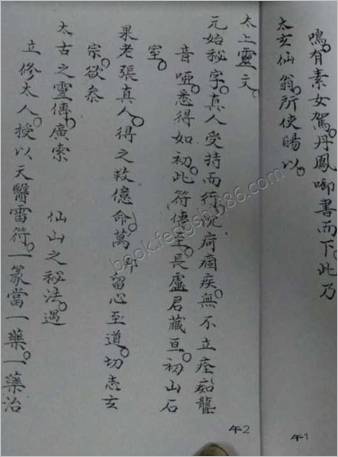 鳴有素女駕丹鳳啣書而下此乃
太玄仙翁所使賜以
太上靈文
元始秘字真人受持而行沉疴痼疾無不立痊龆龍
音啞悉得如初此符傳至長盧君藏亘初山石
室
果老張真人得之救億命萬即留心至道切志玄
宗欲泰
太古之靈傳廣索 仙山之秘法遇
立修太人授以天醫雷符一篆當一藥一藥治
午1
午2